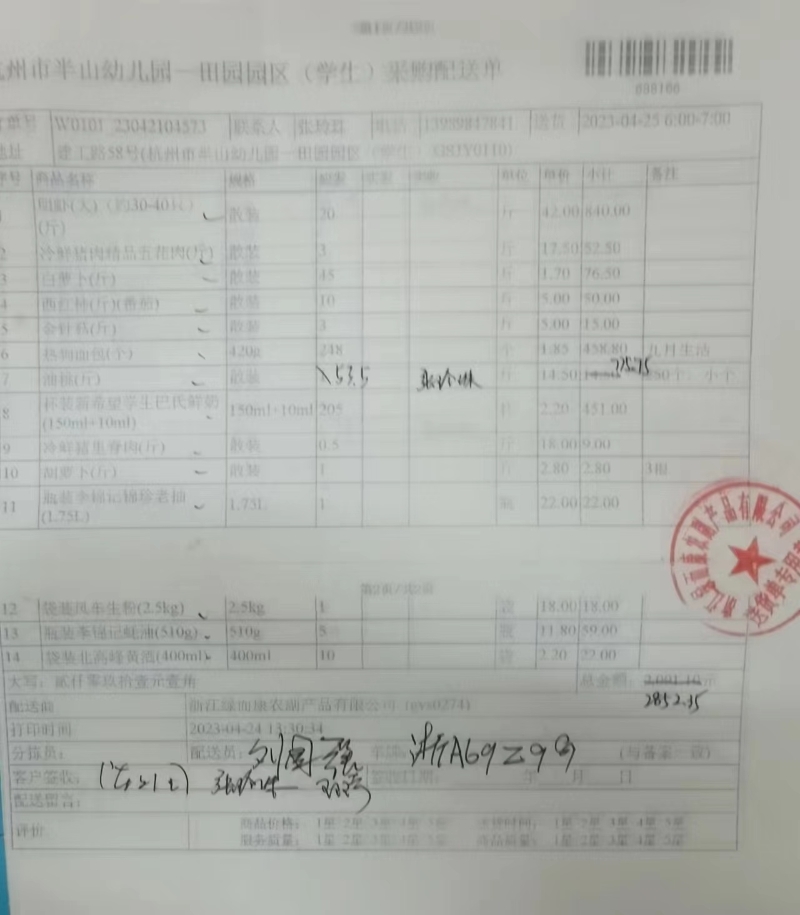 州市半山幼儿园—田园园区（学生）采购配送单
单号 W0101_23042104573 联系人 电话 送货 2023-04-25 6:00-7:00
地址 建工路58号(杭州市半山幼儿园—田园园区（学生）GSJY0110)
序号 商品名称 规格 单位 单价 小计 备注
1 明虾(大)（约30-40只）(斤) 散装 20 斤 42.00 840.00
2 冷鲜猪肉精品五花肉(斤) 散装 3 斤 17.50 52.50
3 白萝卜(斤) 散装 45 斤 1.70 76.50
4 西红柿(斤)(番茄) 散装 10 斤 5.00 50.00
5 金针菇(斤) 散装 3 斤 5.00 15.00
6 热狗面包(个) 420g 248 个 1.85 458.80 九月生活
7 油桃(斤) 散装 53.5 斤 14.50 775.75 小个
8 杯装新希望学生巴氏鲜奶(150ml+10ml) 150ml+10ml 205 2.20 451.00
9 冷鲜猪里脊肉(斤) 散装 0.5 斤 18.00 9.00
10 胡萝卜(斤) 散装 1 斤 2.80 2.80
11 瓶装李锦记锦珍老抽(1.75L) 1.75L 1 瓶 22.00 22.00
第2页/共2页
12 袋装风车生粉(2.5kg) 2.5kg 1 袋 18.00 18.00
13 瓶装李锦记蚝油(510g) 510g 5 瓶 11.80 59.00
14 袋装北高峰黄酒(400ml) 400ml 10 袋 2.20 22.00
大写：贰仟零玖拾壹元壹角 总金额：2,091.10元
2852.35
配送商 浙江绿而康农副产品有限公司 (gys0274)
打印时间 2023-04-24 13:30:34
分拣员： 配送员：刘国强 车牌：浙A69Z9 (与备案一致)
客户签收： 签收日期： 年 月 日
配送留言：
评价 商品价格： 1星 2星 3星 4星 5星 1星 2星 3星 4星 5星
服务质量： 1星 2星 3星 4星 5星 商品质量： 1星 2星 3星 4星 5星